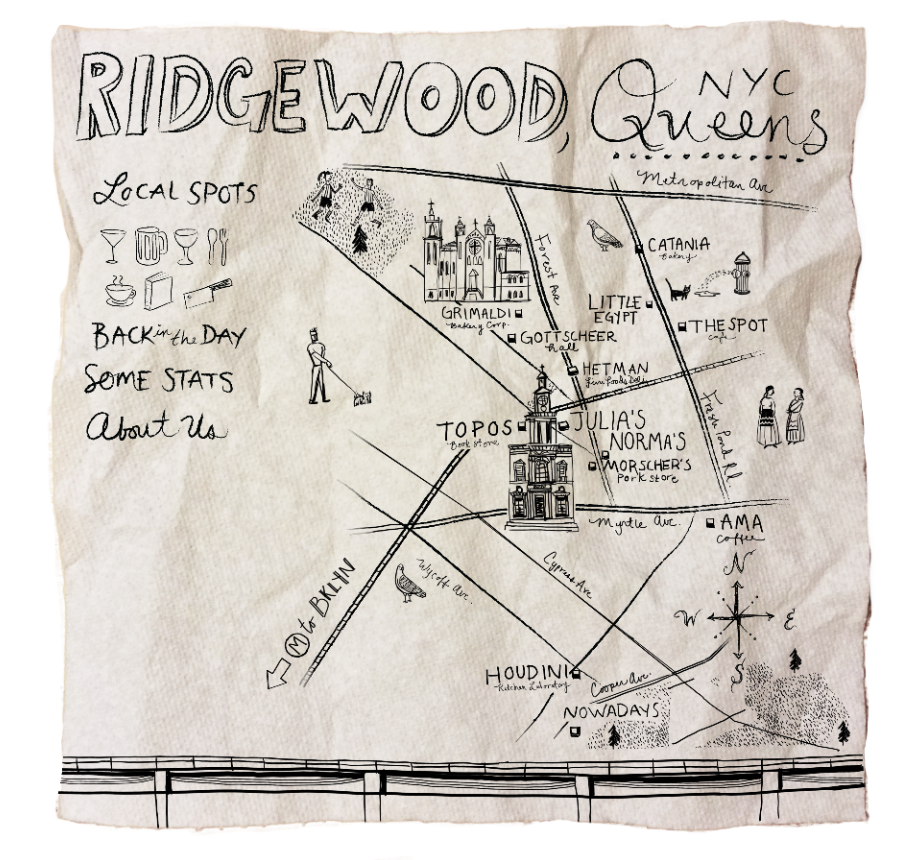 RIDGEWOOD, NYC
Queens
LOCAL SPOTS
BACK in the DAY
SOME STATS
About Us
Metropolitan Av
Forest Ave
CATANIA
Bakery
LITTLE
EGYPT
THE SPOT
cafe
GRIMALDI
Bakery Corp.
GOTTSCHEER
hall
HETMAN
Fresh Pond Rd.
TOPOS
Book Store
JULIA'S
NORMA'S
MORSCHER'S
Pork Store
Myrtle Ave.
AMA
coffee
Cypress Ave
Wycoff Ave.
M to BKLYN
N
W E
S
HOUDINI
Kitchen Laboratory
Cooper Ave.
NOWADAYS